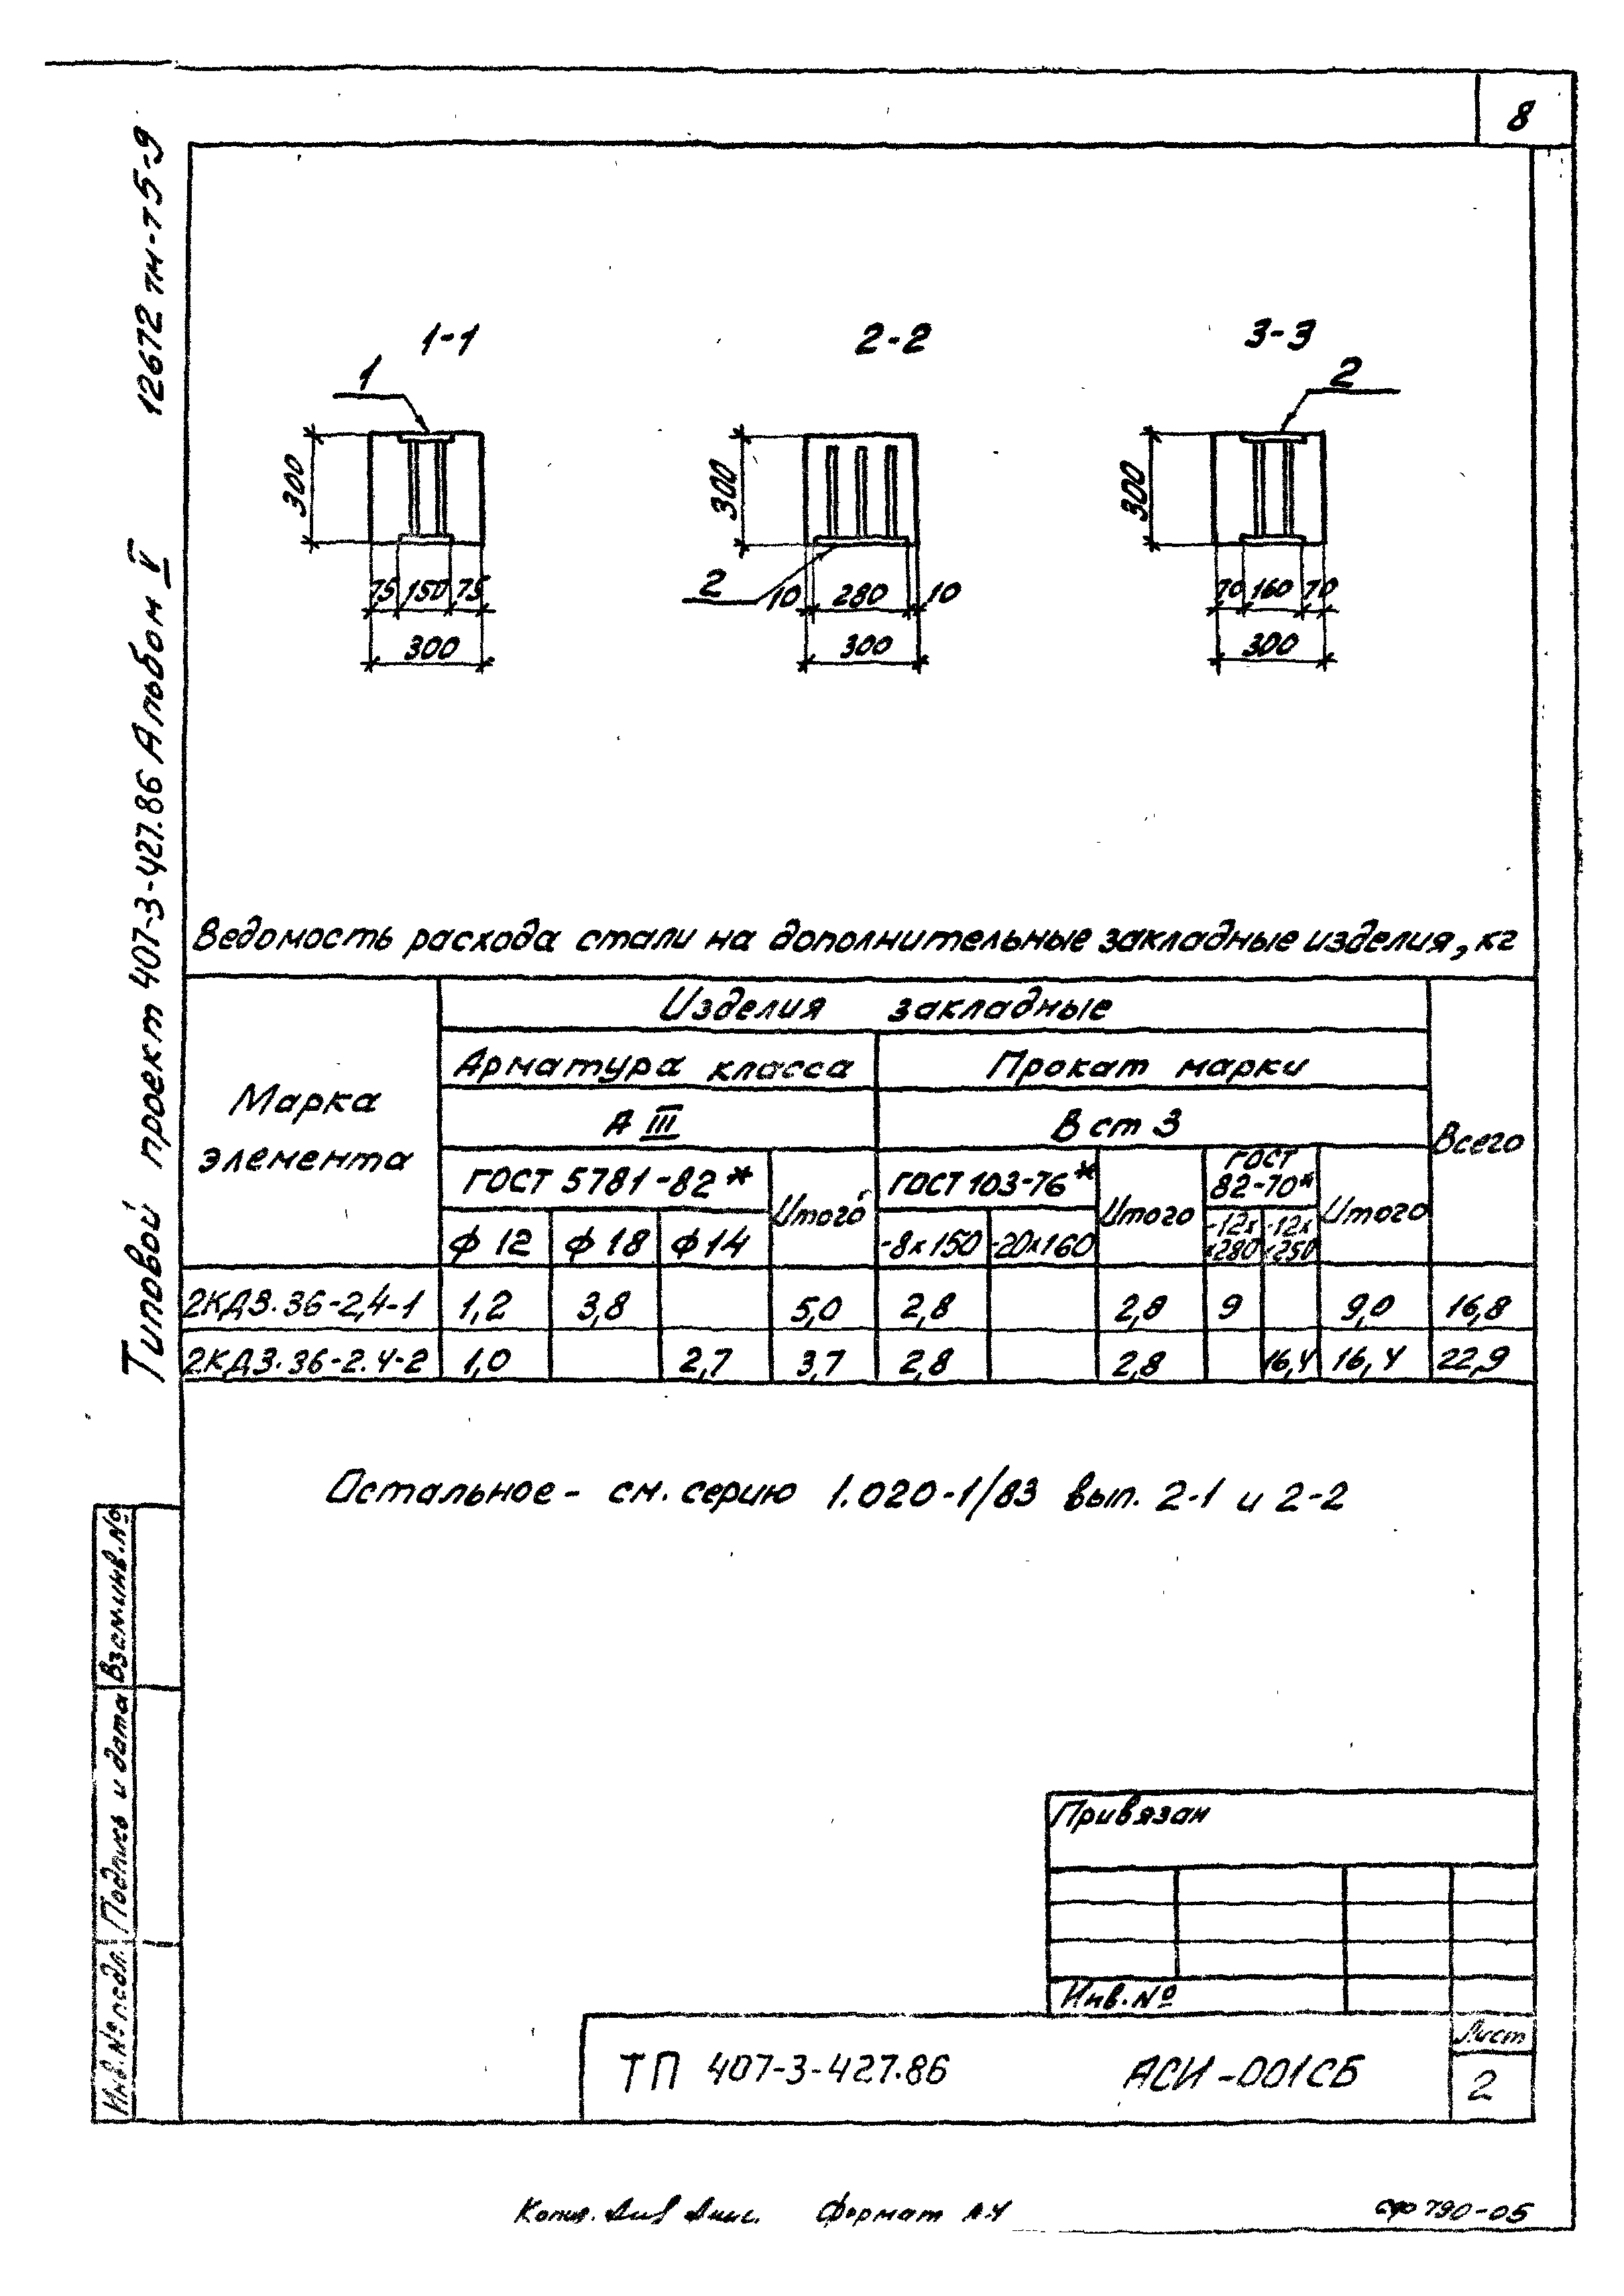 8
12672 тм-т5-9
Типовой проект 407-3-427.86 Альбом V
1-1
1
300
75 150 75
300
2-2
300
2
10 280 10
300
3-3
2
300
70 160 70
300
Ведомость расхода стали на дополнительные закладные изделия, кг
Марка элемента
Изделия закладные
Всего
Арматура класса
Прокат марки
А III
В ст 3
ГОСТ 5781-82*
Итого
ГОСТ 103-76*
Итого
ГОСТ 82-70*
Итого
ф 12 ф 18 ф 14
-8х150 -20х160
-12х х280 -12х х250
2КД3.36-2,4-1 1,2 3,8 5,0 2,8 2,8 9 9,0 16,8
2КД3.36-2.4-2 1,0 2,7 3,7 2,8 2,8 16,4 16,4 22,9
Остальное - см. серию 1.020-1/83 вып. 2-1 и 2-2
Взам.инв.№
Подпись и дата
Инв.№ подл.
Привязан
Инв.№
ТП 407-3-427.86 АСИ-001СБ
Лист
2
Копия. Формат А4
сф 790-05